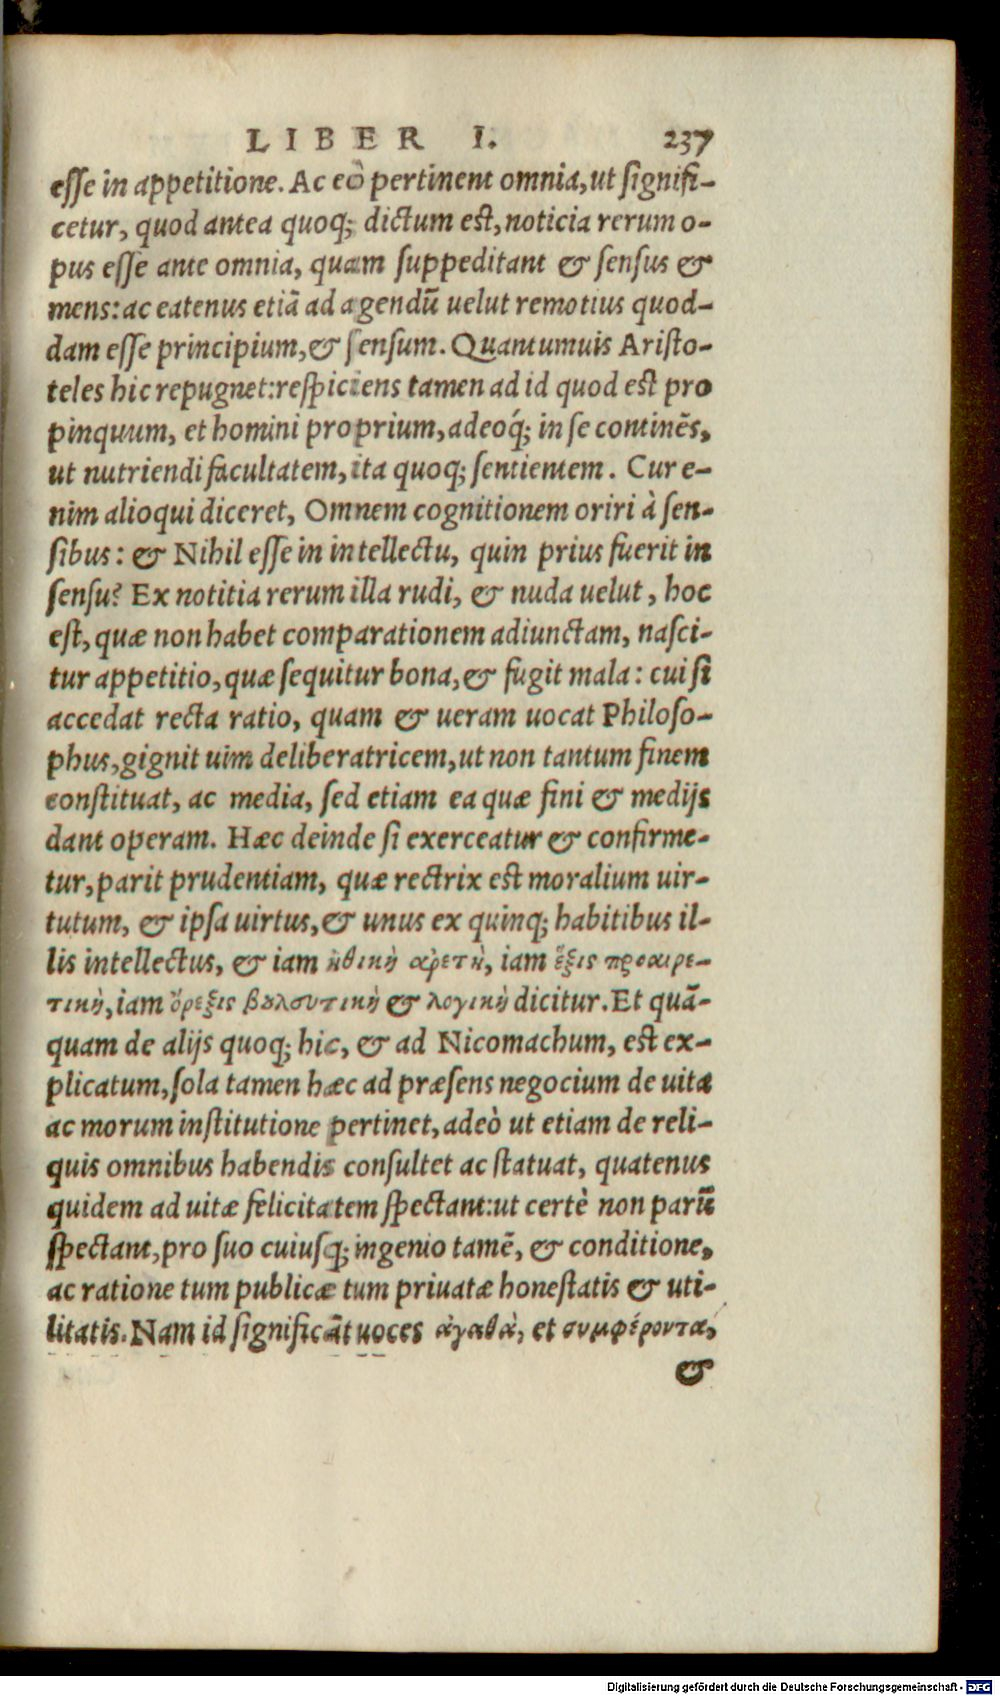 LIBER I. 237
esse in appetitione. Ac eò pertinent omnia, ut signifi-
cetur, quod antea quoq; dictum est, noticia rerum o-
pus esse ante omnia, quam suppeditant & sensus &
mens: ac eatenus etiã ad agendũ uelut remotius quod-
dam esse principium, & sensum. Quantumuis Aristo-
teles hic repugnet: respiciens tamen ad id quod est pro
pinquum, et homini proprium, adeoq́; in se continẽs,
ut nutriendi facultatem, ita quoq; sentientem. Cur e-
nim alioqui diceret, Omnem cognitionem oriri à sen-
sibus: & Nihil esse in intellectu, quin prius fuerit in
sensu? Ex notitia rerum illa rudi, & nuda uelut, hoc
est, quæ non habet comparationem adiunctam, nasci-
tur appetitio, quæ sequitur bona, & fugit mala: cui si
accedat recta ratio, quam & ueram uocat Philoso-
phus, gignit uim deliberatricem, ut non tantum finem
constituat, ac media, sed etiam ea quæ fini & medijs
dant operam. Hæc deinde si exerceatur & confirme-
tur, parit prudentiam, quæ rectrix est moralium uir-
tutum, & ipsa uirtus, & unus ex quinq; habitibus il-
lis intellectus, & iam ἠθικὴ ἀρετὴ, iam ἕξις προαιρε-
τικὴ, iam ὄρεξις βουλευτικὴ & λογικὴ dicitur. Et quã-
quam de alijs quoq; hic, & ad Nicomachum, est ex-
plicatum, sola tamen hæc ad præsens negocium de uita
ac morum institutione pertinet, adeò ut etiam de reli-
quis omnibus habendis consultet ac statuat, quatenus
quidem ad uitæ felicitatem spectant: ut certè non parũ
spectant, pro suo cuiusq; ingenio tamẽ, & conditione,
ac ratione tum publicæ tum priuatæ honestatis & uti-
litatis. Nam id significãt uoces ἀγαθὰ, et συμφέροντα,
&
Digitalisierung gefördert durch die Deutsche Forschungsgemeinschaft - DFG